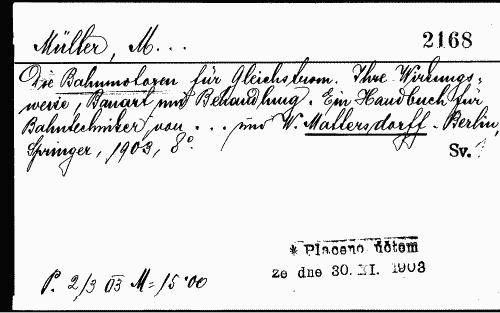 Müller, M...
2168
Die Bahnmotoren für Gleichstrom. Ihre Wirkungs-
weise, Bauart und Behandlung. Ein Handbuch für
Bahntechniker von ... und W. Mattersdorff. Berlin,
Springer, 1903, 8°
Sv.
* Placeno účtem
ze dne 30. XI. 1903
P. 2/3 03 M = 15·00